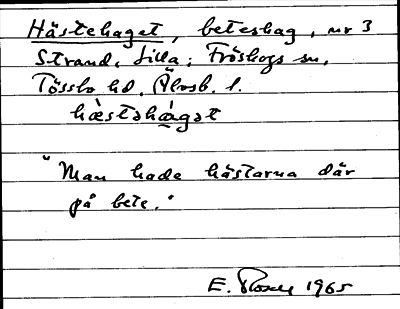 Hästehaget, beteshag, nr 3
Strand, Lilla; Fröskogs sn,
Tössbo hd. Älvsb. l.
hæ̀stəhágət
"Man hade hästarna där
på bete."
E. 1965